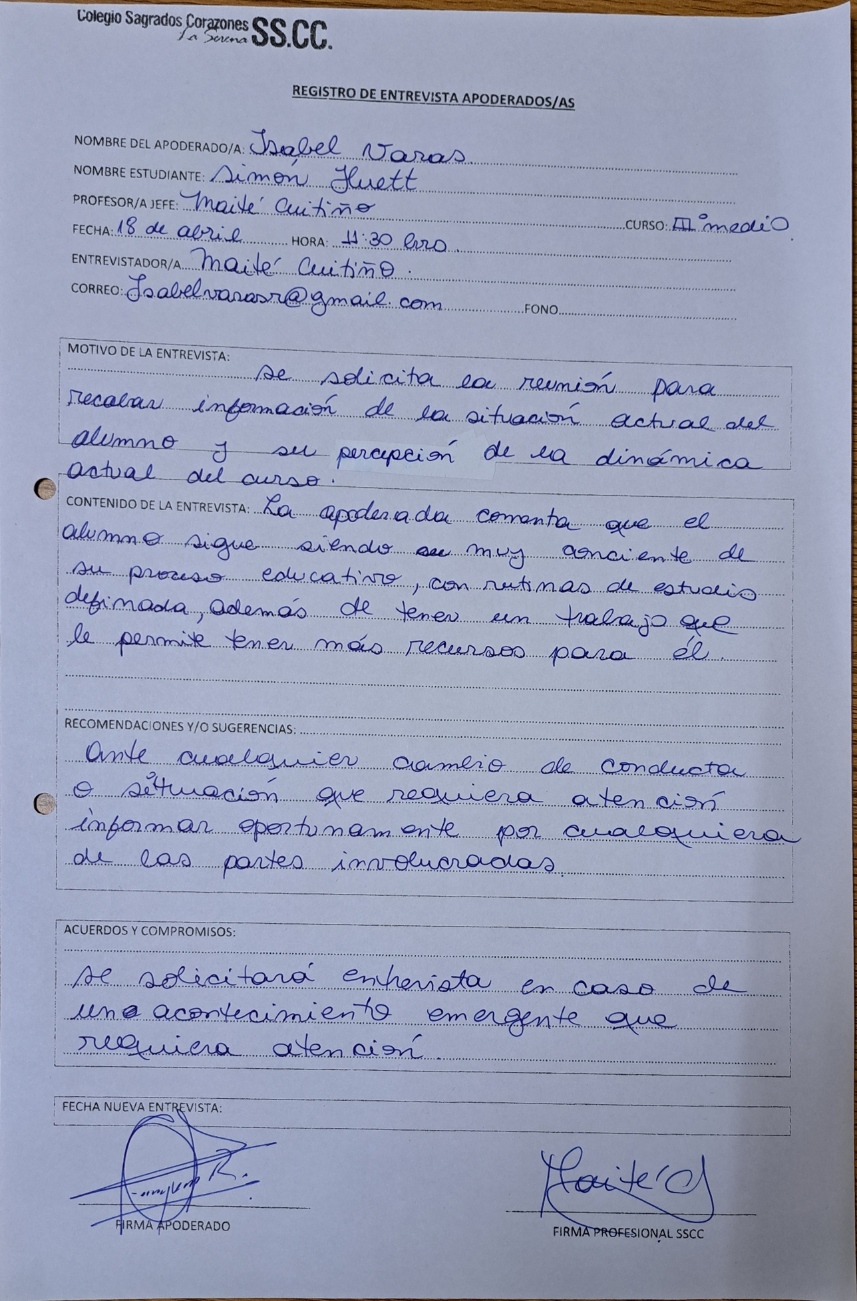 Colegio Sagrados Corazones SS.CC.
La Serena
REGISTRO DE ENTREVISTA APODERADOS/AS
NOMBRE DEL APODERADO/A: Isabel Varas
NOMBRE ESTUDIANTE: Simón Huett
PROFESOR/A JEFE: Maité Cuitiño CURSO: III° medio
FECHA: 18 de abril HORA: 11:30 hrs
ENTREVISTADOR/A Maité Cuitiño.
CORREO: Isabelvarasr@gmail.com FONO
MOTIVO DE LA ENTREVISTA:
se solicita la reunión para
recabar información de la situación actual del
alumno y su percepción de la dinámica
actual del curso.
CONTENIDO DE LA ENTREVISTA: La apoderada comenta que el
alumno sigue siendo muy conciente de
su proceso educativo, con rutinas de estudio
definada, además de tener un trabajo que
le permite tener más recursos para él.
RECOMENDACIONES Y/O SUGERENCIAS:
Ante cualquier cambio de conducta
o situación que requiera atención
informar oportunamente por cualquiera
de las partes involucradas.
ACUERDOS Y COMPROMISOS:
se solicitará entrevista en caso de
una acontecimiento emergente que
requiera atención.
FECHA NUEVA ENTREVISTA:
Maité C
FIRMA APODERADO
FIRMA PROFESIONAL SSCC